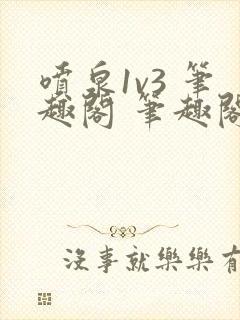 噴泉1v3 筆
趣閣 筆趣閣
沒事就樂樂有